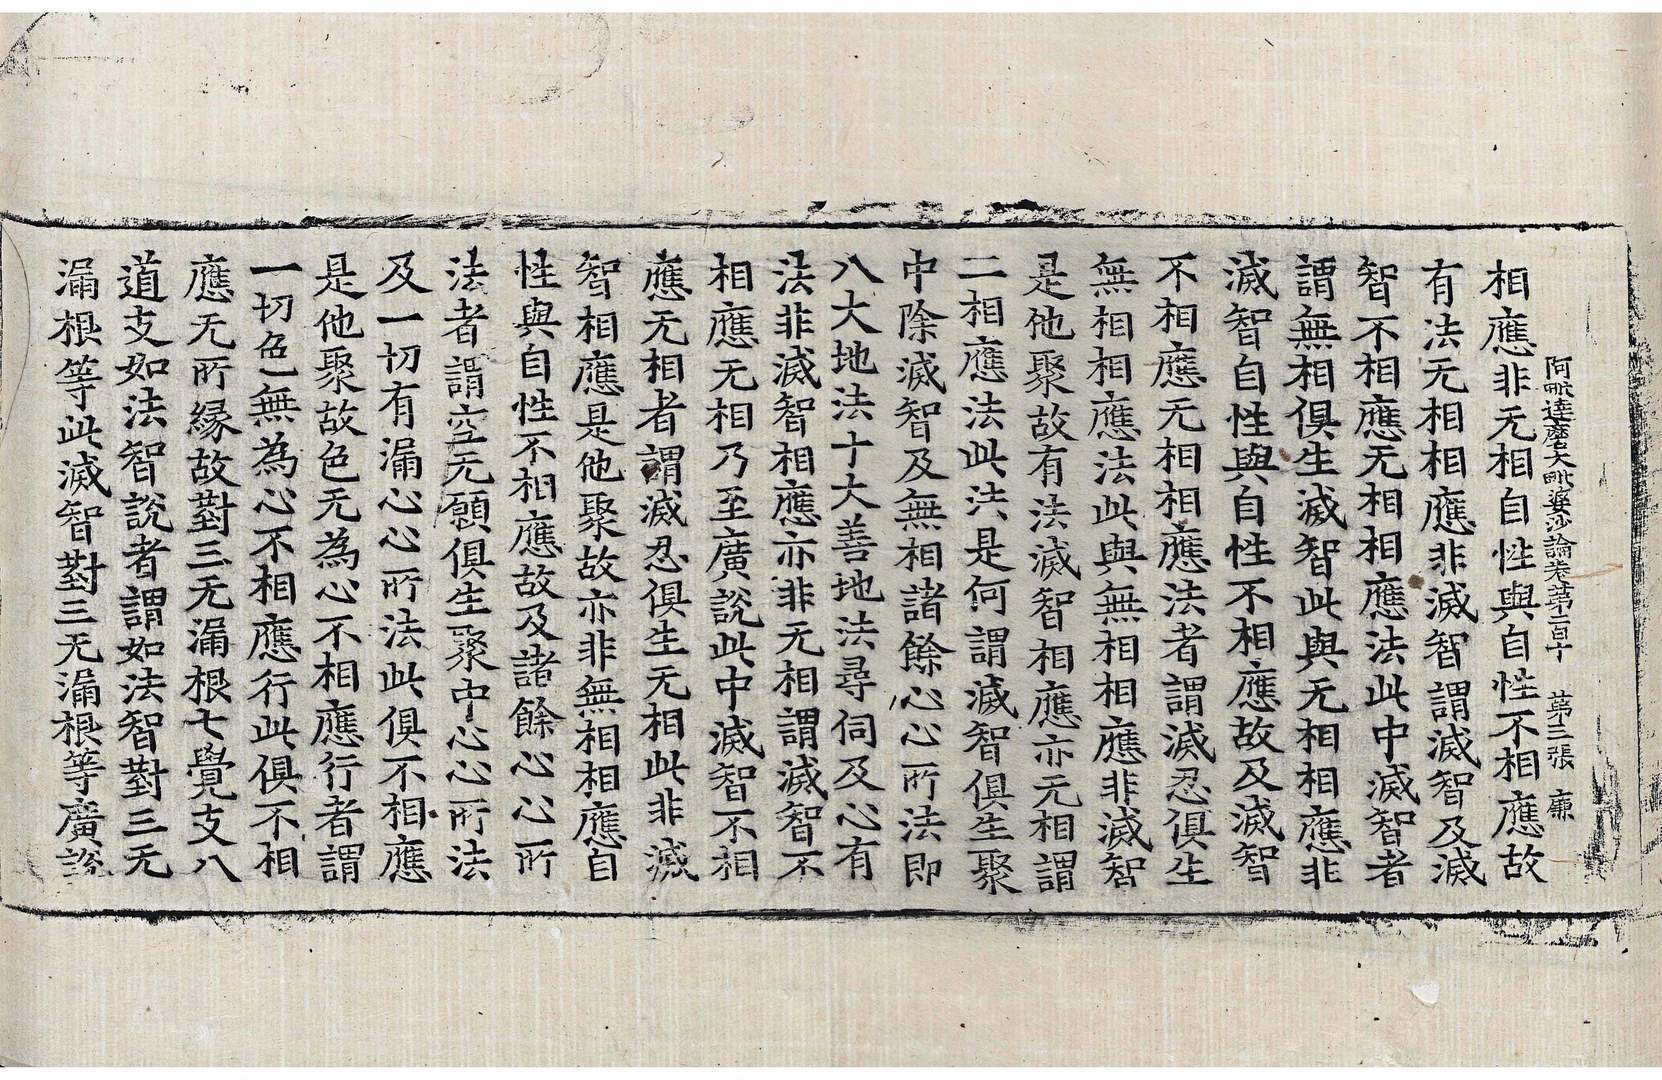 阿毗達磨大毗婆沙論卷第一百十　第三張　廉
相應非无相自性與自性不相應故
有法无相相應非滅智謂滅智及滅
智不相應无相相應法此中滅智者
謂無相俱生滅智此與无相相應非
滅智自性與自性不相應故及滅智
不相應无相相應法者謂滅忍俱生
無相相應法此與無相相應非滅智
是他聚故有法滅智相應亦无相謂
二相應法此法是何謂滅智俱生聚
中除滅智及無相諸餘心心所法即
八大地法十大善地法尋伺及心有
法非滅智相應亦非无相謂滅智不
相應无相乃至廣說此中滅智不相
應无相者謂滅忍俱生无相此非滅
智相應是他聚故亦非無相相應自
性與自性不相應故及諸餘心心所
法者謂空无願俱生聚中心心所法
及一切有漏心心所法此俱不相應
是他聚故色无為心不相應行者謂
一切色無為心不相應行此俱不相
應无所緣故對三无漏根七覺支八
道支如法智說者謂如法智對三无
漏根等此滅智對三无漏根等廣說